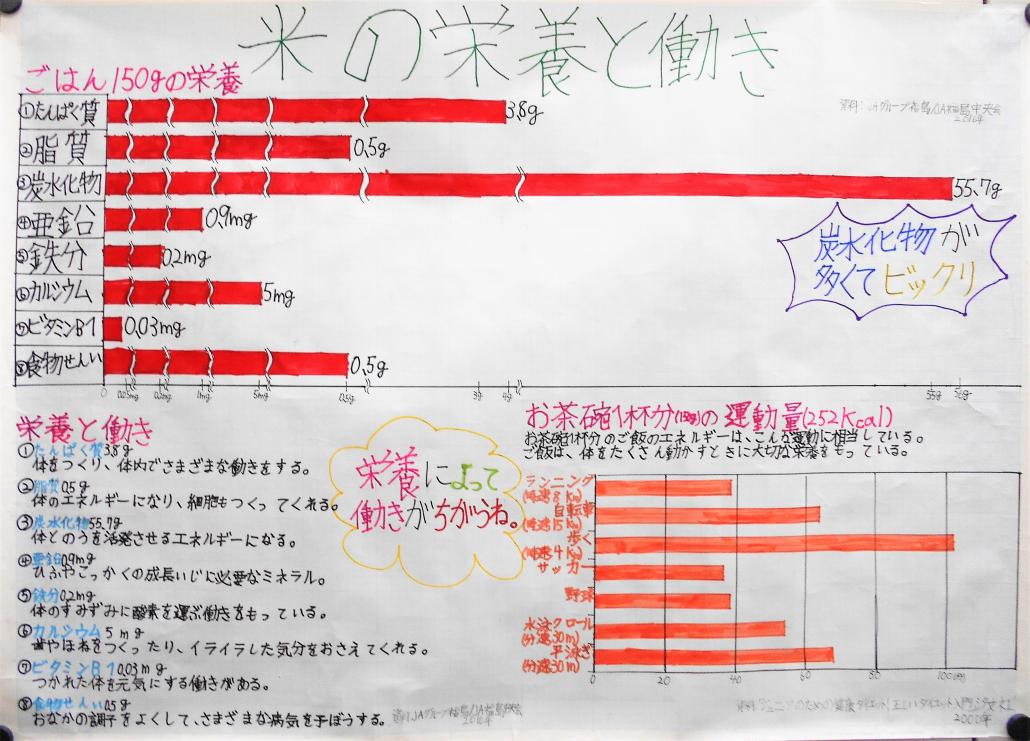 米の栄養と働き
ごはん150gの栄養
資料:JAグループ福島/JA福島中央会
2016年
①たんぱく質 3.8g
②脂質 0.5g
③炭水化物 55.7g
④亜鉛 0.9mg
⑤鉄分 0.2mg
⑥カルシウム 5mg
⑦ビタミンB1 0.03mg
⑧食物せんい 0.5g
炭水化物が
多くてビックリ
0 0.05mg 0.2mg 1mg 5mg 0.5g 3g 4g 55g 56g
栄養と働き
①たんぱく質3.8g
体をつくり、体内でさまざまな働きをする。
②脂質0.5g
体のエネルギーになり、細胞もつくってくれる。
③炭水化物55.7g
体とのうを活発させるエネルギーになる。
④亜鉛0.9mg
ひふやこっかくの成長いじに必要なミネラル。
⑤鉄分0.2mg
体のすみずみに酸素を運ぶ働きをもっている。
⑥カルシウム5mg
歯やほねをつくったり、イライラした気分をおさえてくれる。
⑦ビタミンB1 0.03mg
つかれた体を元気にする働きがある。
⑧食物せんい0.5g
おなかの調子をよくして、さまざまな病気を予ぼうする。
資料JAグループ福島/JA福島中央会
2016年
栄養によって
働きがちがうね。
お茶碗1杯分(150g)の運動量(252Kcal)
お茶碗1杯分のご飯のエネルギーは、こんな運動に相当している。
ご飯は、体をたくさん動かすときに大切な栄養をもっている。
ランニング
(時速8km)
自転車
(時速15km)
歩く
(時速4km)
サッカー
野球
水泳クロール
(分速30m)
平泳ぎ
(分速30m)
0 20 40 60 80 100(分)
資料 ジュニアのための健康ダイエット1正しいダイエット入門
2000年